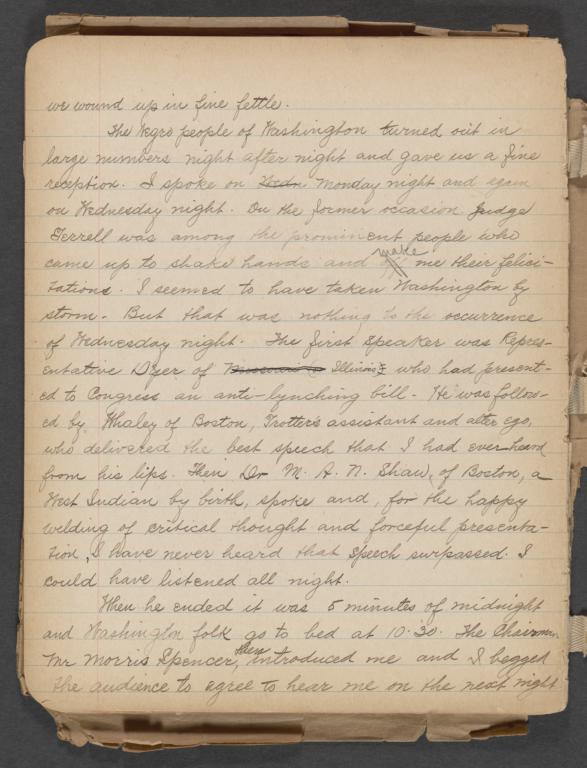 we wound up in fine fettle.
The Negro people of Washington turned out in
large numbers night after night and gave us a fine
reception. I spoke on Monday night and again
on Wednesday night. On the former occasion Judge
Terrell was among the prominent people who
came up to shake hands and make me their felici-
tations. I seemed to have taken Washington by
storm. But that was nothing to the occurrence
of Wednesday night. The first speaker was Repres-
entative Dyer of Illinois who had present-
ed to Congress an anti-lynching bill. He was follow-
ed by Whaley of Boston, Trotter's assistant and alter ego,
who delivered the best speech that I had ever heard
from his lips. Then Dr M. A. N. Shaw, of Boston, a
West Indian by birth, spoke and, for the happy
welding of critical thought and forceful presenta-
tion, I have never heard that speech surpassed. I
could have listened all night.
When he ended it was 5 minutes of midnight
and Washington folk go to bed at 10.30. The Chairman
Mr Morris Spencer, then introduced me and I begged
the audience to agree to hear me on the next night